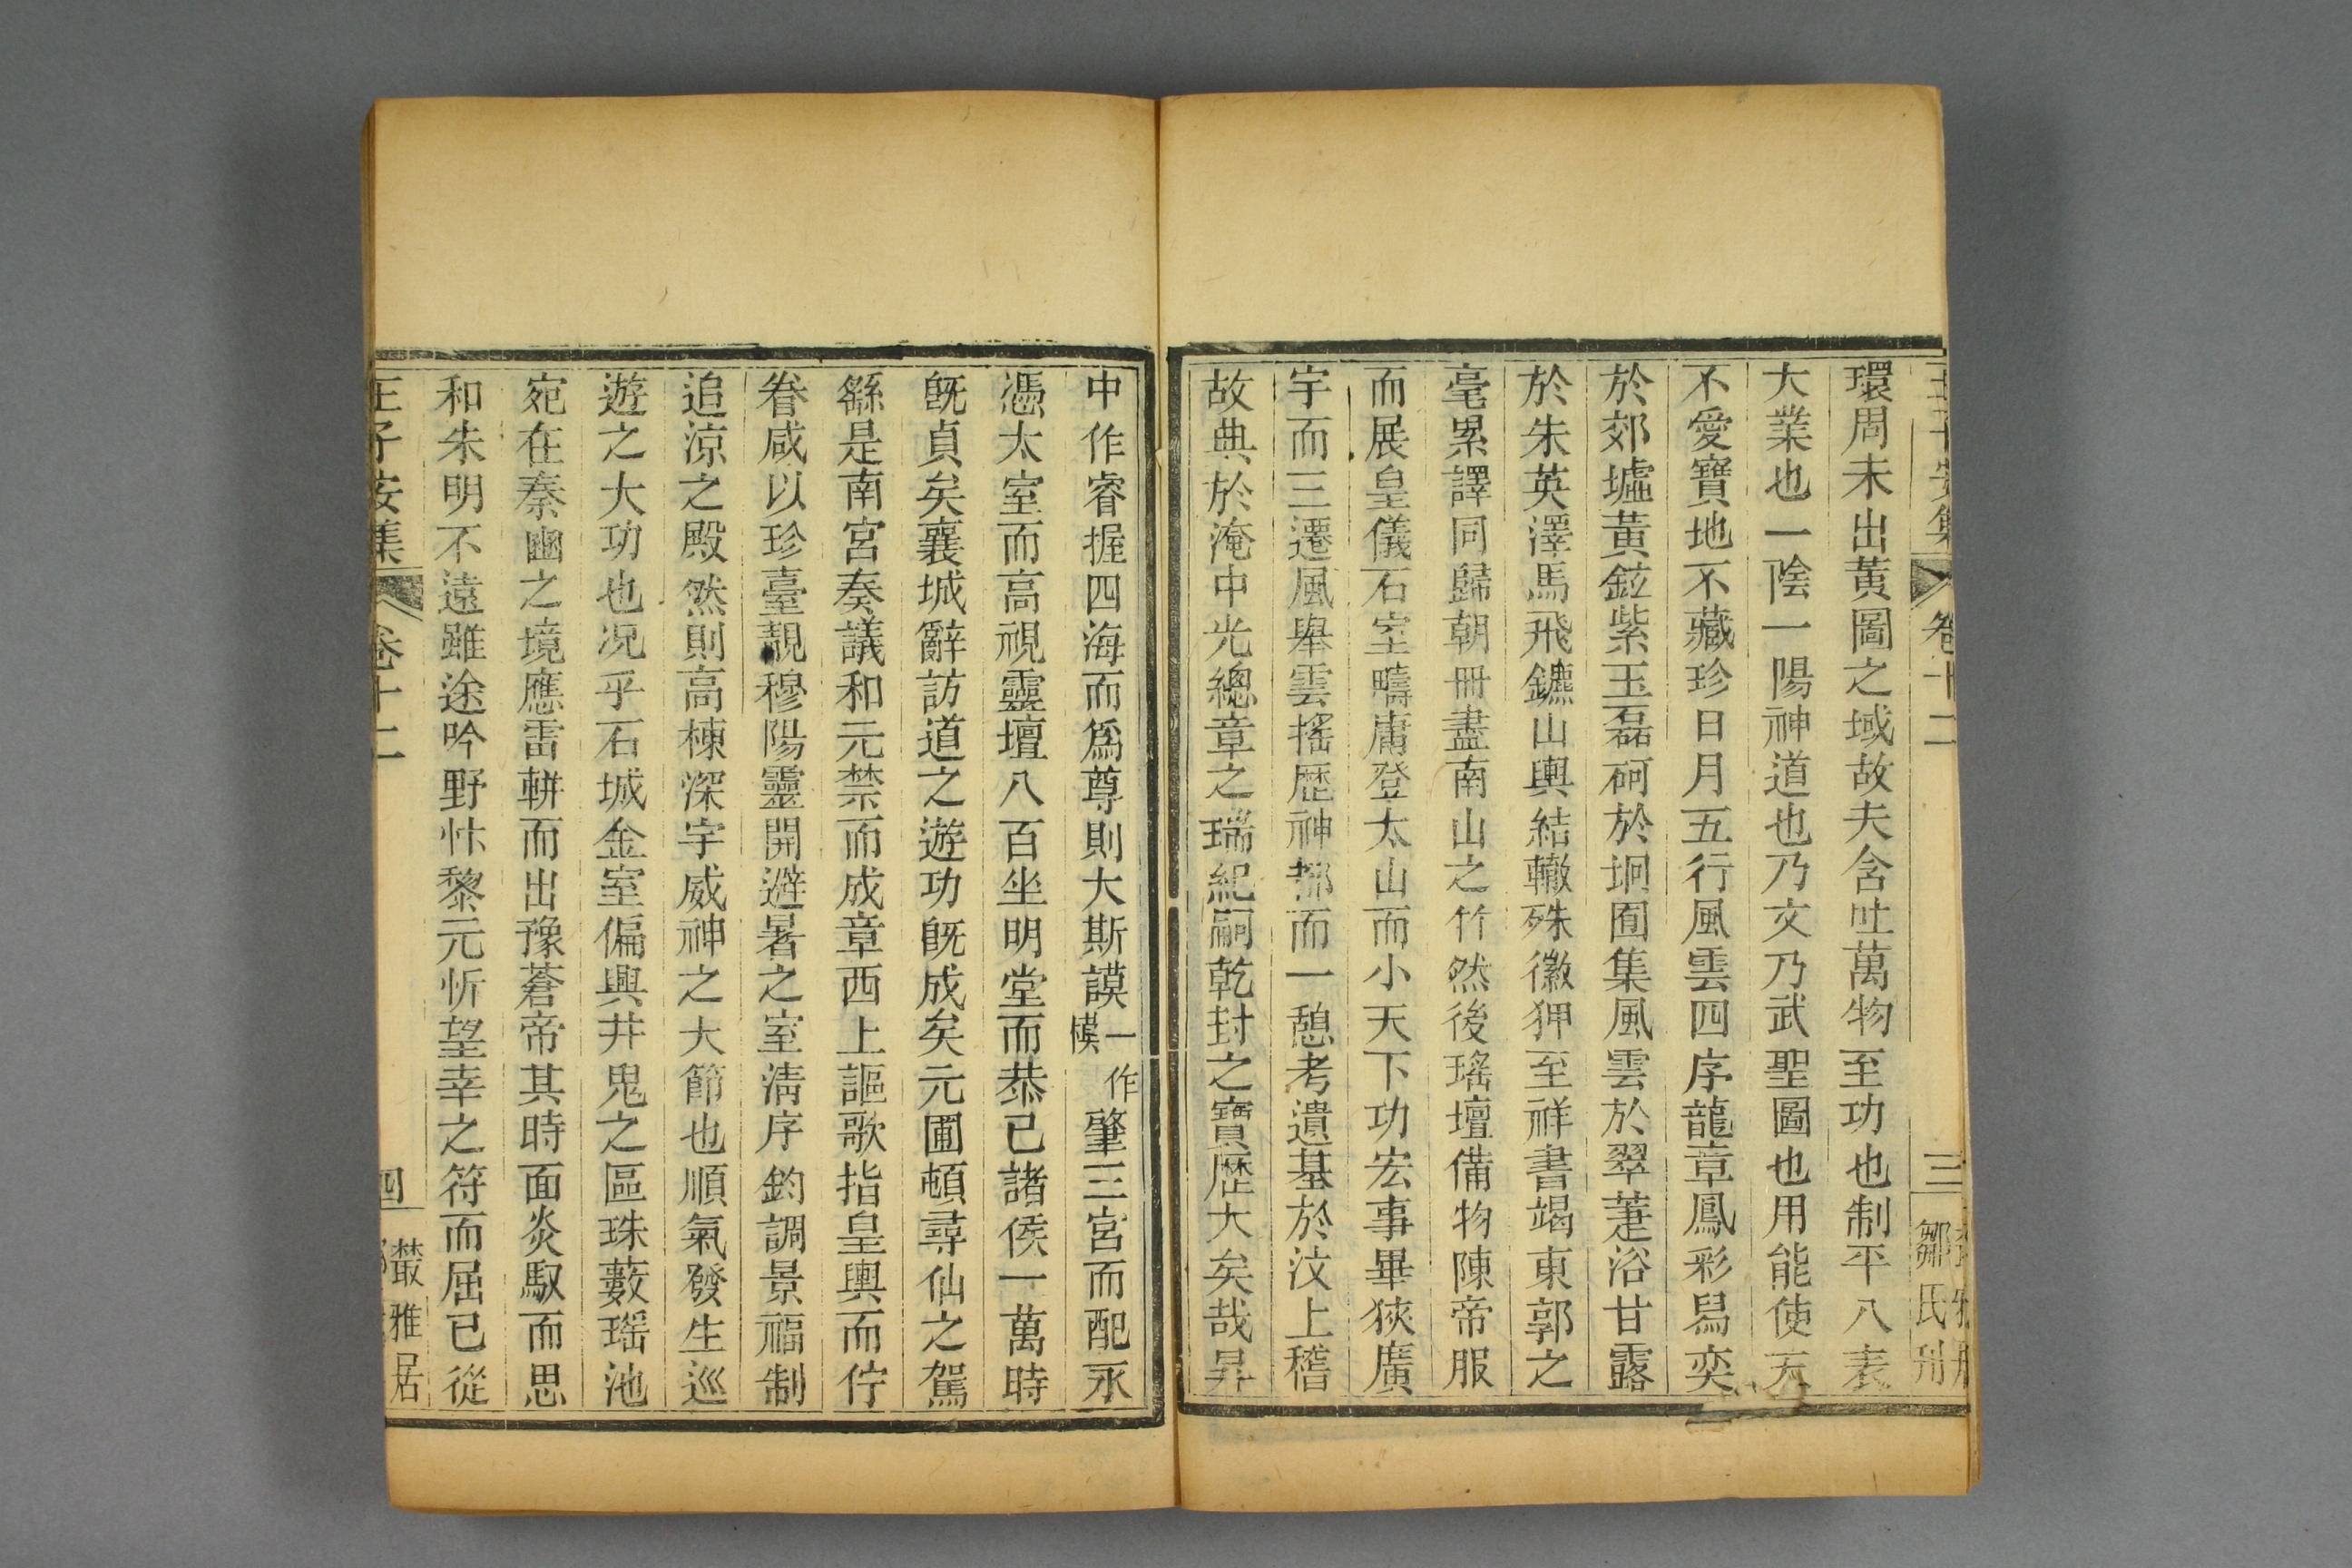 王子安集 卷十二 三 鄒氏刋
環周未出黃圖之域故夫含吐萬物至功也制平八表
大業也一陰一陽神道也乃文乃武聖圖也用能使天
不愛寶地不藏珍日月五行風雲四序龍章鳳彩舄奕
於郊墟黃鉉紫玉磊砢於坰囿集風雲於翠萐浴甘露
於朱英澤馬飛鑣山輿結轍殊徽狎至祥書竭東郭之
毫累譯同歸朝冊盡南山之竹然後瑤壇備物陳帝服
而展皇儀石室疇庸登太山而小天下功宏事畢狹廣
宇而三遷風舉雲搖歷神都而一憩考遺基於汶上稽
故典於淹中光總章之瑞紀嗣乾封之寶歷大矣哉昇
中作睿握四海而爲尊則大斯謨一作慔肇三宮而配永
憑太室而高視靈壇八百坐明堂而恭已諸侯一萬時
旣貞矣襄城辭訪道之遊功旣成矣元圃頓尋仙之駕
繇是南宮奏議和元禁而成章西上謳歌指皇輿而佇
眷咸以珍臺靚穆陽靈開避暑之室清序鈞調景福制
追涼之殿然則高棟深宇威神之大節也順氣發生巡
遊之大功也况乎石城金室偏興井鬼之區珠藪瑤池
宛在秦豳之境應雷軿而出豫蒼帝其時面炎馭而思
和朱明不遠雖途吟野忭黎元忻望幸之符而屈已從
王子安集 卷十二 四 叢雅居